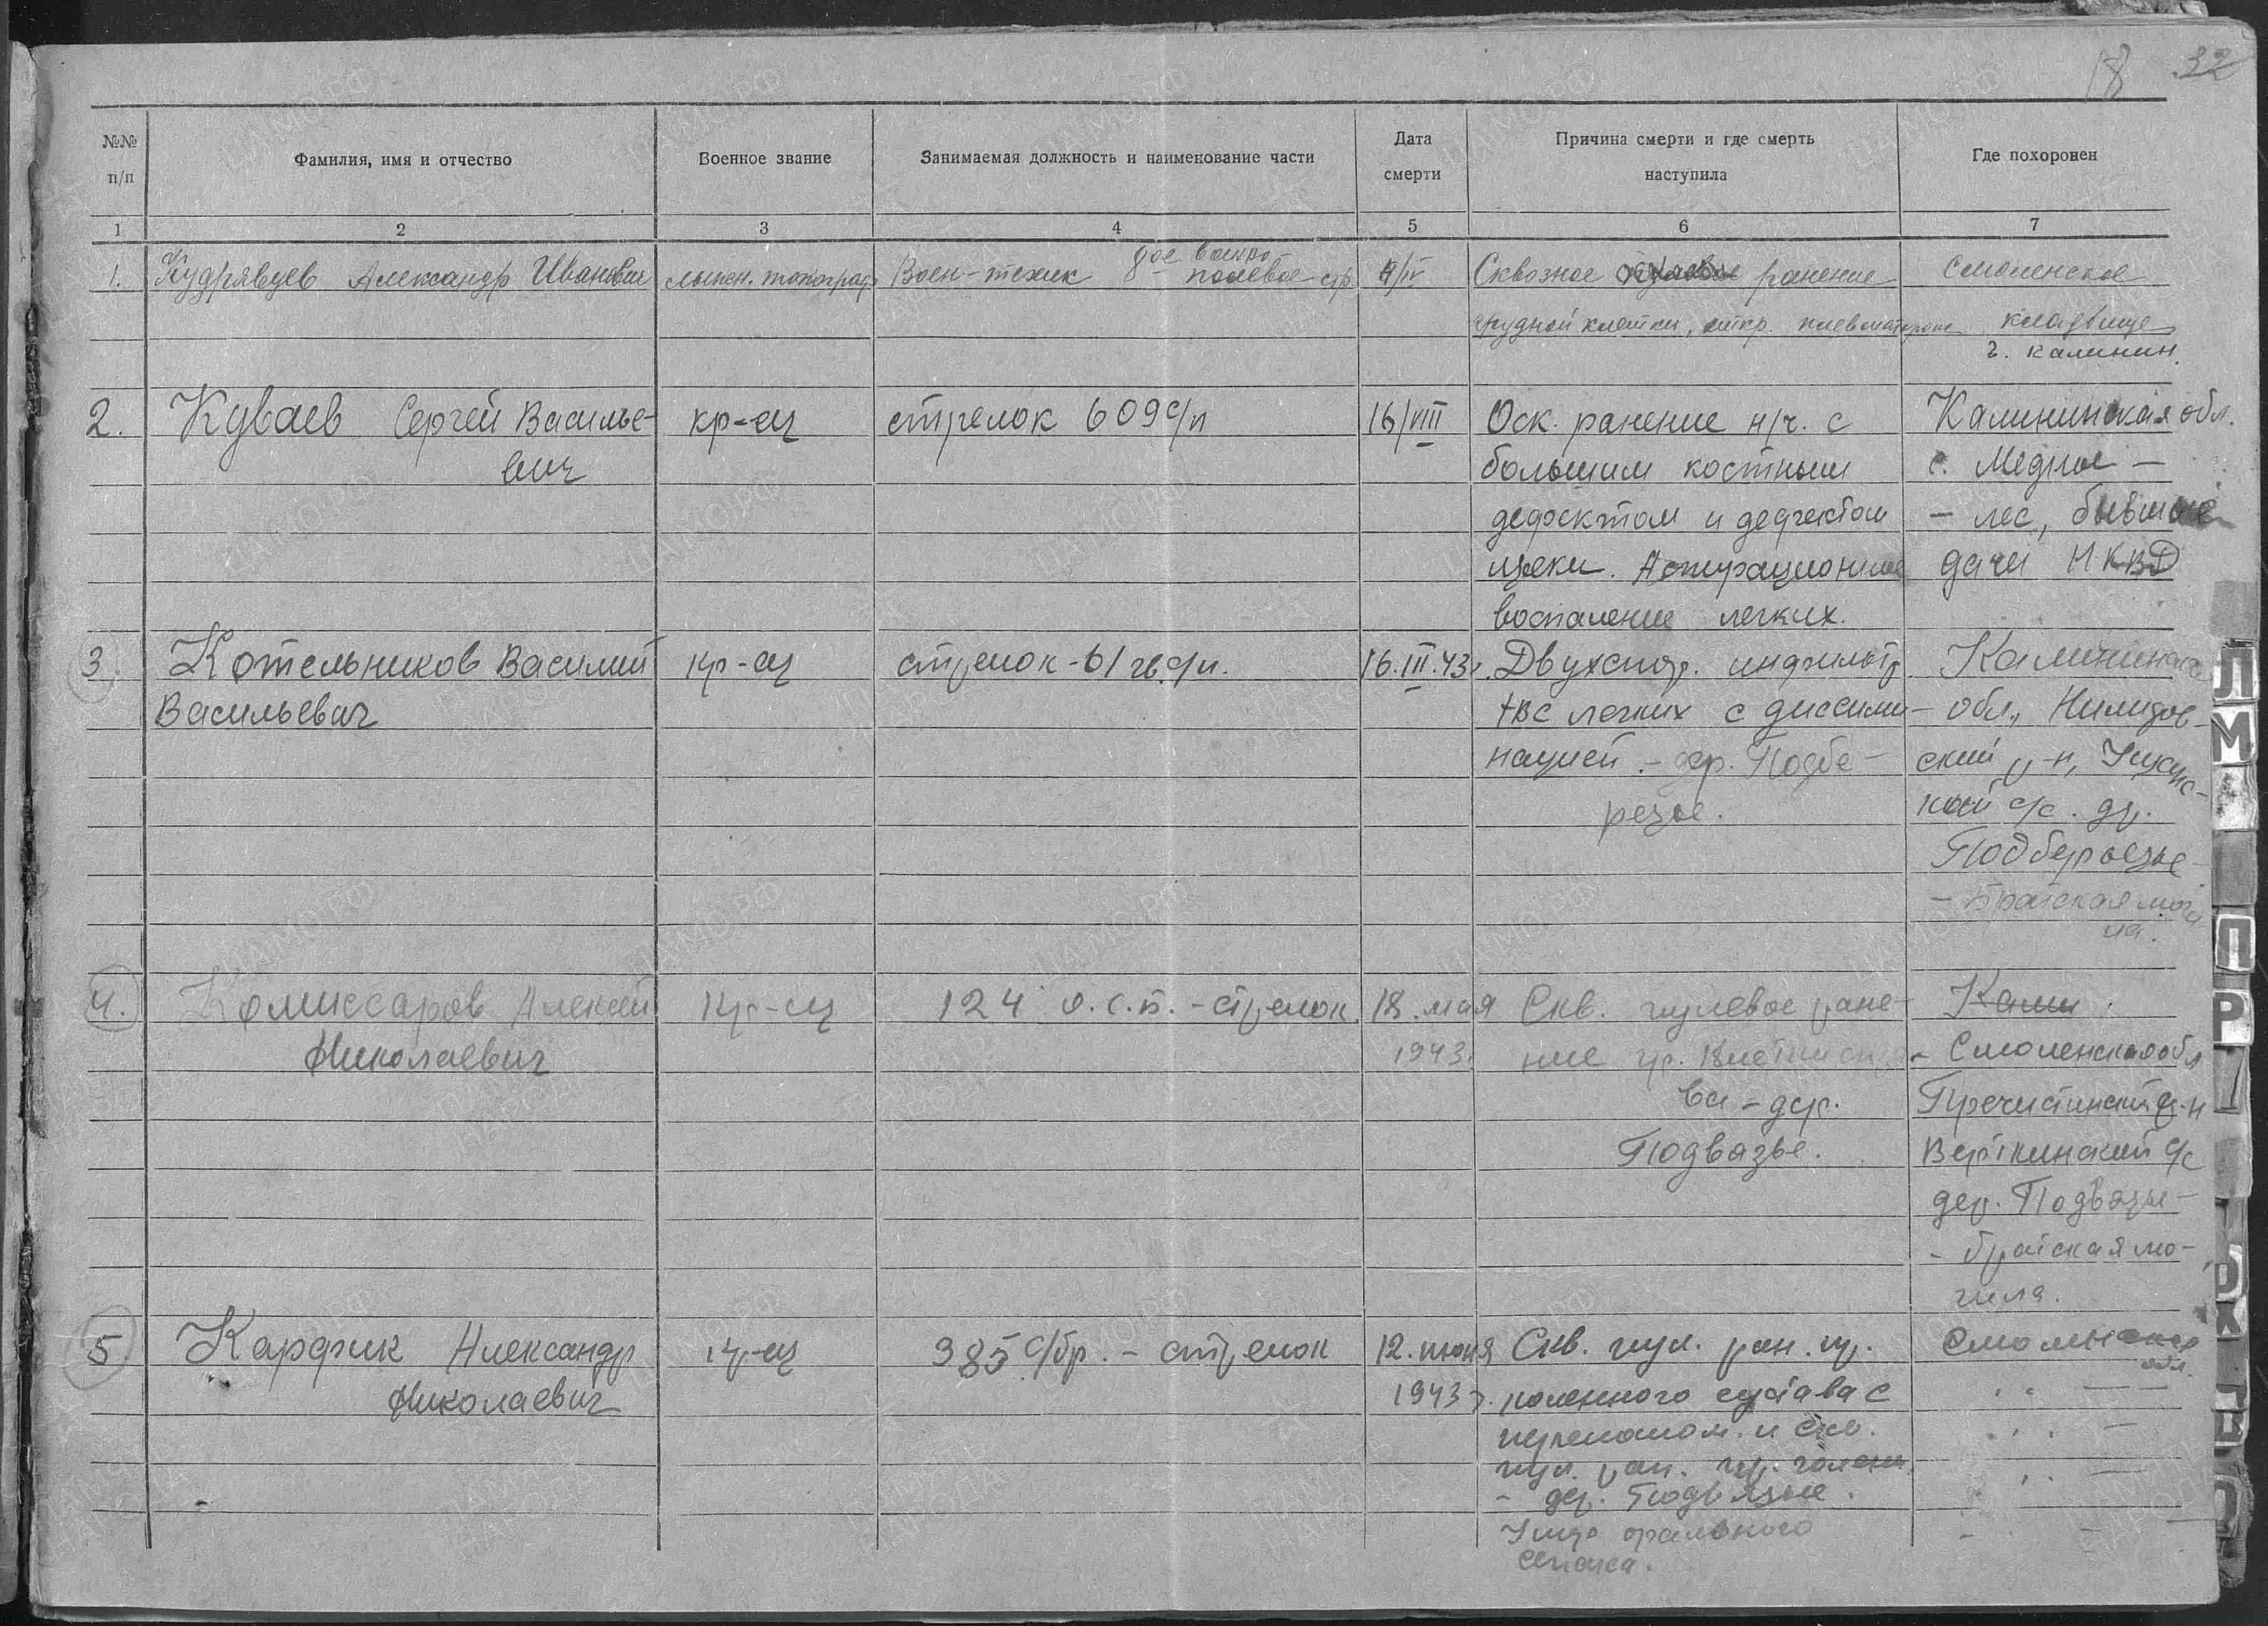 18 32
№№ п/п
Фамилия, имя и отчество
Военное звание
Занимаемая должность и наименование части
Дата смерти
Причина смерти и где смерть наступила
Где похоронен
1 2 3 4 5 6 7
1. Кудрявцев Александр Иванович Воен-техник 8ое военно полевое стр /IV Сквозное ранение Смоленское
грудной клетки, откр. пневматоракс кладбище
г. Калинин.
2. Куваев Сергей Василье- кр-ец стрелок 609 с/п 16/VIII Оск. ранение н/ч. с Калининская обл.
вич большим костным с. Медное -
дефектом и дефектом - лес, бывшие
щеки. Аспирационное дачи НКВД
воспаление легких.
3. Котельников Василий кр-ец стрелок - 61 гв.с/п. 16.III.43г. Двухстор. инфильтр. Калининская
Васильевич твс легких с диссеми- обл., Нелидов-
нацией. - дер. Подбе- ский р-н,
резье. с/с. др.
Подберезье
- Братская моги
ла.
4. Комиссаров Алексей кр-ец 124 о.с.п. - стрелок. 18. мая Скв. пулевое ране- Калин
Николаевич 1943г. ние гр. клетки - Смоленская обл
дер. Пречистинский р-н
Подвязье. с/с
дер. Подвязье -
- братская мо-
гила.
5. Карфик Александр кр-ец 385 с/бр. - стрелок 12. июня Скв. пул. ран. пр. Смоленская обл.
Николаевич 1943г. коленного сустава с " —
переломом. и скв. " —
пул. ран. пр. голени. " —
- дер. Подвязье.
Умер от
Л
М
П
Р